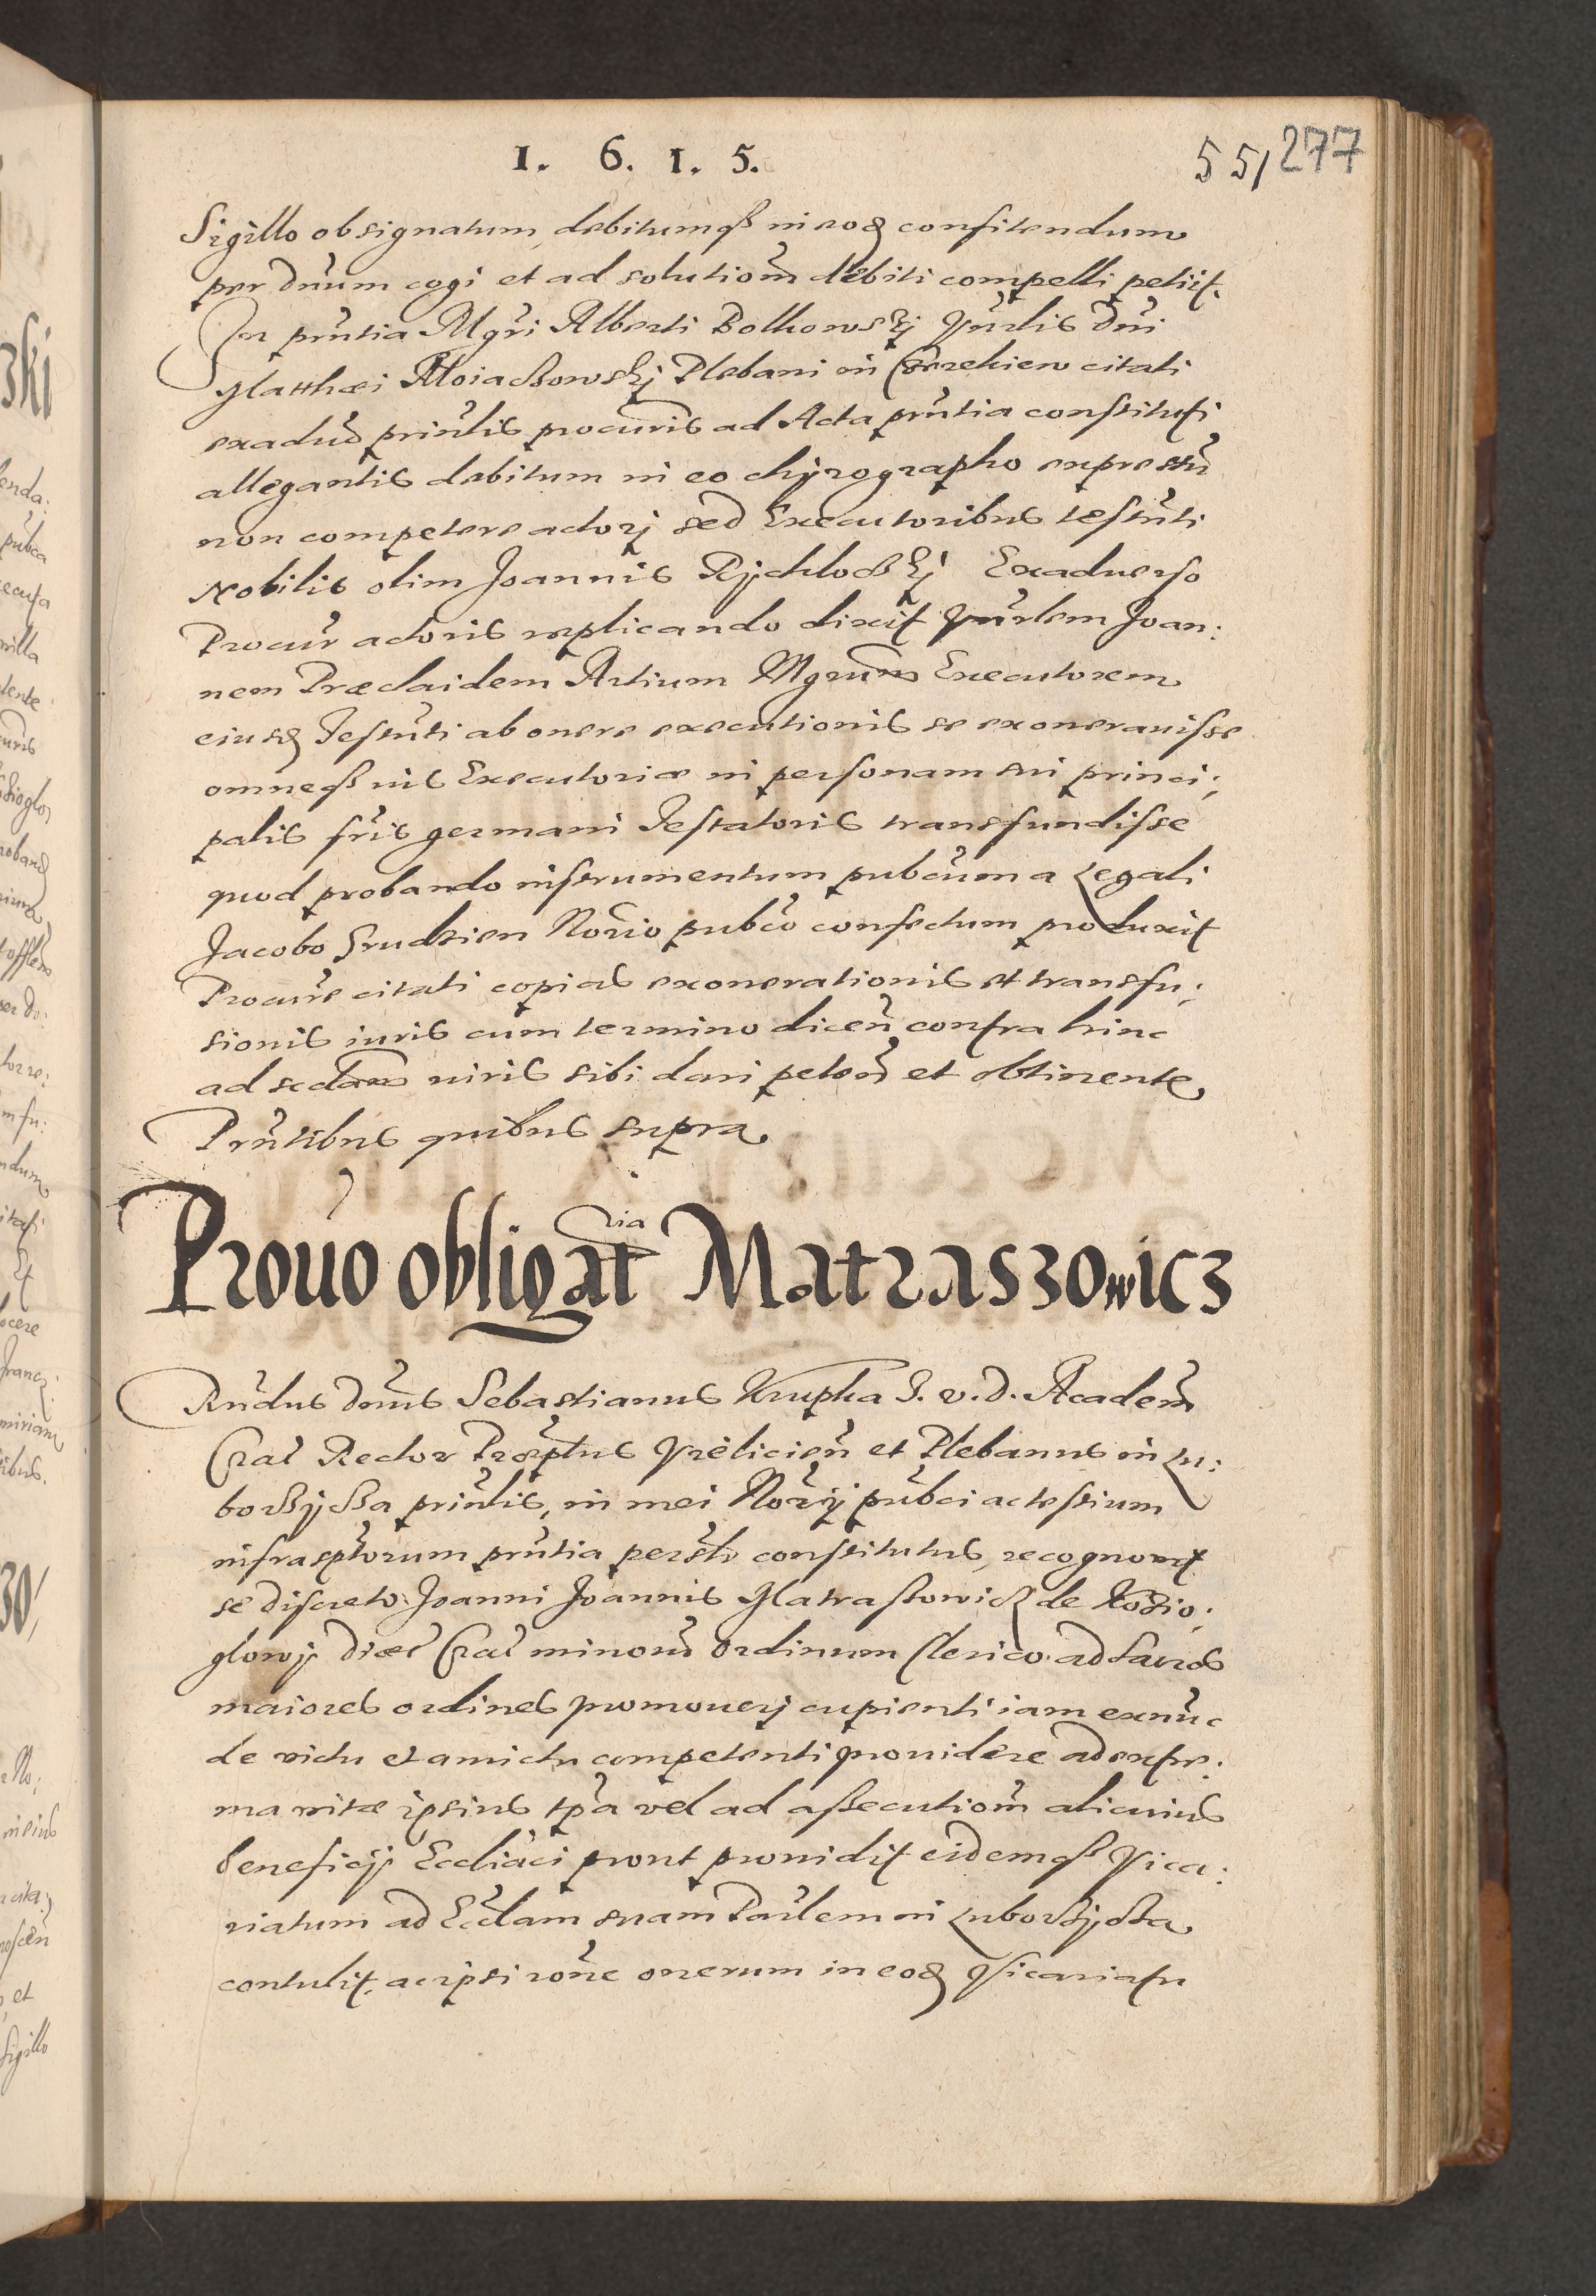 1. 6. 1. 5.
55/277
Sigillo obsignatum, debitumqß in eoq confitendum
per dnum cogi et ad solutiom debiti compelli petiit.
In pntia Mgri Alberti Bolkowskij Vnrlis dni
Matthæi Moiaczowskij Plebani in citati
exaduo prinlis procuris ad Acta pntia constituti
allegantis debitum in eo chyrographo expressu
non competere actorj sed Executoribus testnti
nobilis olim Joannis Rychlockj Exaduerso
Procur actoris replicando dixit Vnrlem Joan:
nem Præclaidem Artium Mgrum Executorem
eiusq Testnti ab onere executionis se exoneravisse
omneqß ius Executoriæ in personam sui princi:
palis fris germani Testatoris transfundisse
quod probando instrumentum pubcum a Legali
Jacobo Grudzien Norio pubco confectum produxit
Procure citati copias exonerationis et transfu:
sionis iuris cum termino dicen contra hinc
ad scdam iuris sibi dari peten et obtinente
Pntibus quibus supra
Prouo obligatria Matraszowicz
Rndus dnus Sebastianus Krupka I. v. d. Academ
Cral Rector Præptus Vielicien et Plebanus in Lu:
borzycza prinlis, in mei Norij pubci ac testium
infrasptorum pntia persltr constitutus, recognovit
se discreto Joanni Joannis Matraszowicz de Kozio:
glowy diœc Cral minorum ordinum Clerico ad sacros
maiores ordines promouerj cupienti iam exnunc
de victu et amictu competenti providere ad extre:
ma vitæ ipsius tpa vel ad assecutiom alicuius
beneficij Eccliaci prout prouidit eidemqß Vica:
riatum ad Ecclam suam Parlem in Luborzycza
contulit, ac ipsi rone onerum in eoq Vicariatu